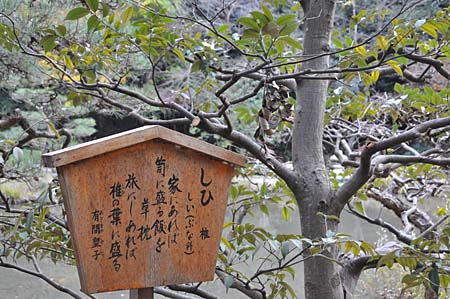 しひ 椎
しい(ぶな科)
家にあれば
笥に盛る飯を
草枕
旅にしあれば
椎の葉に盛る
有間皇子